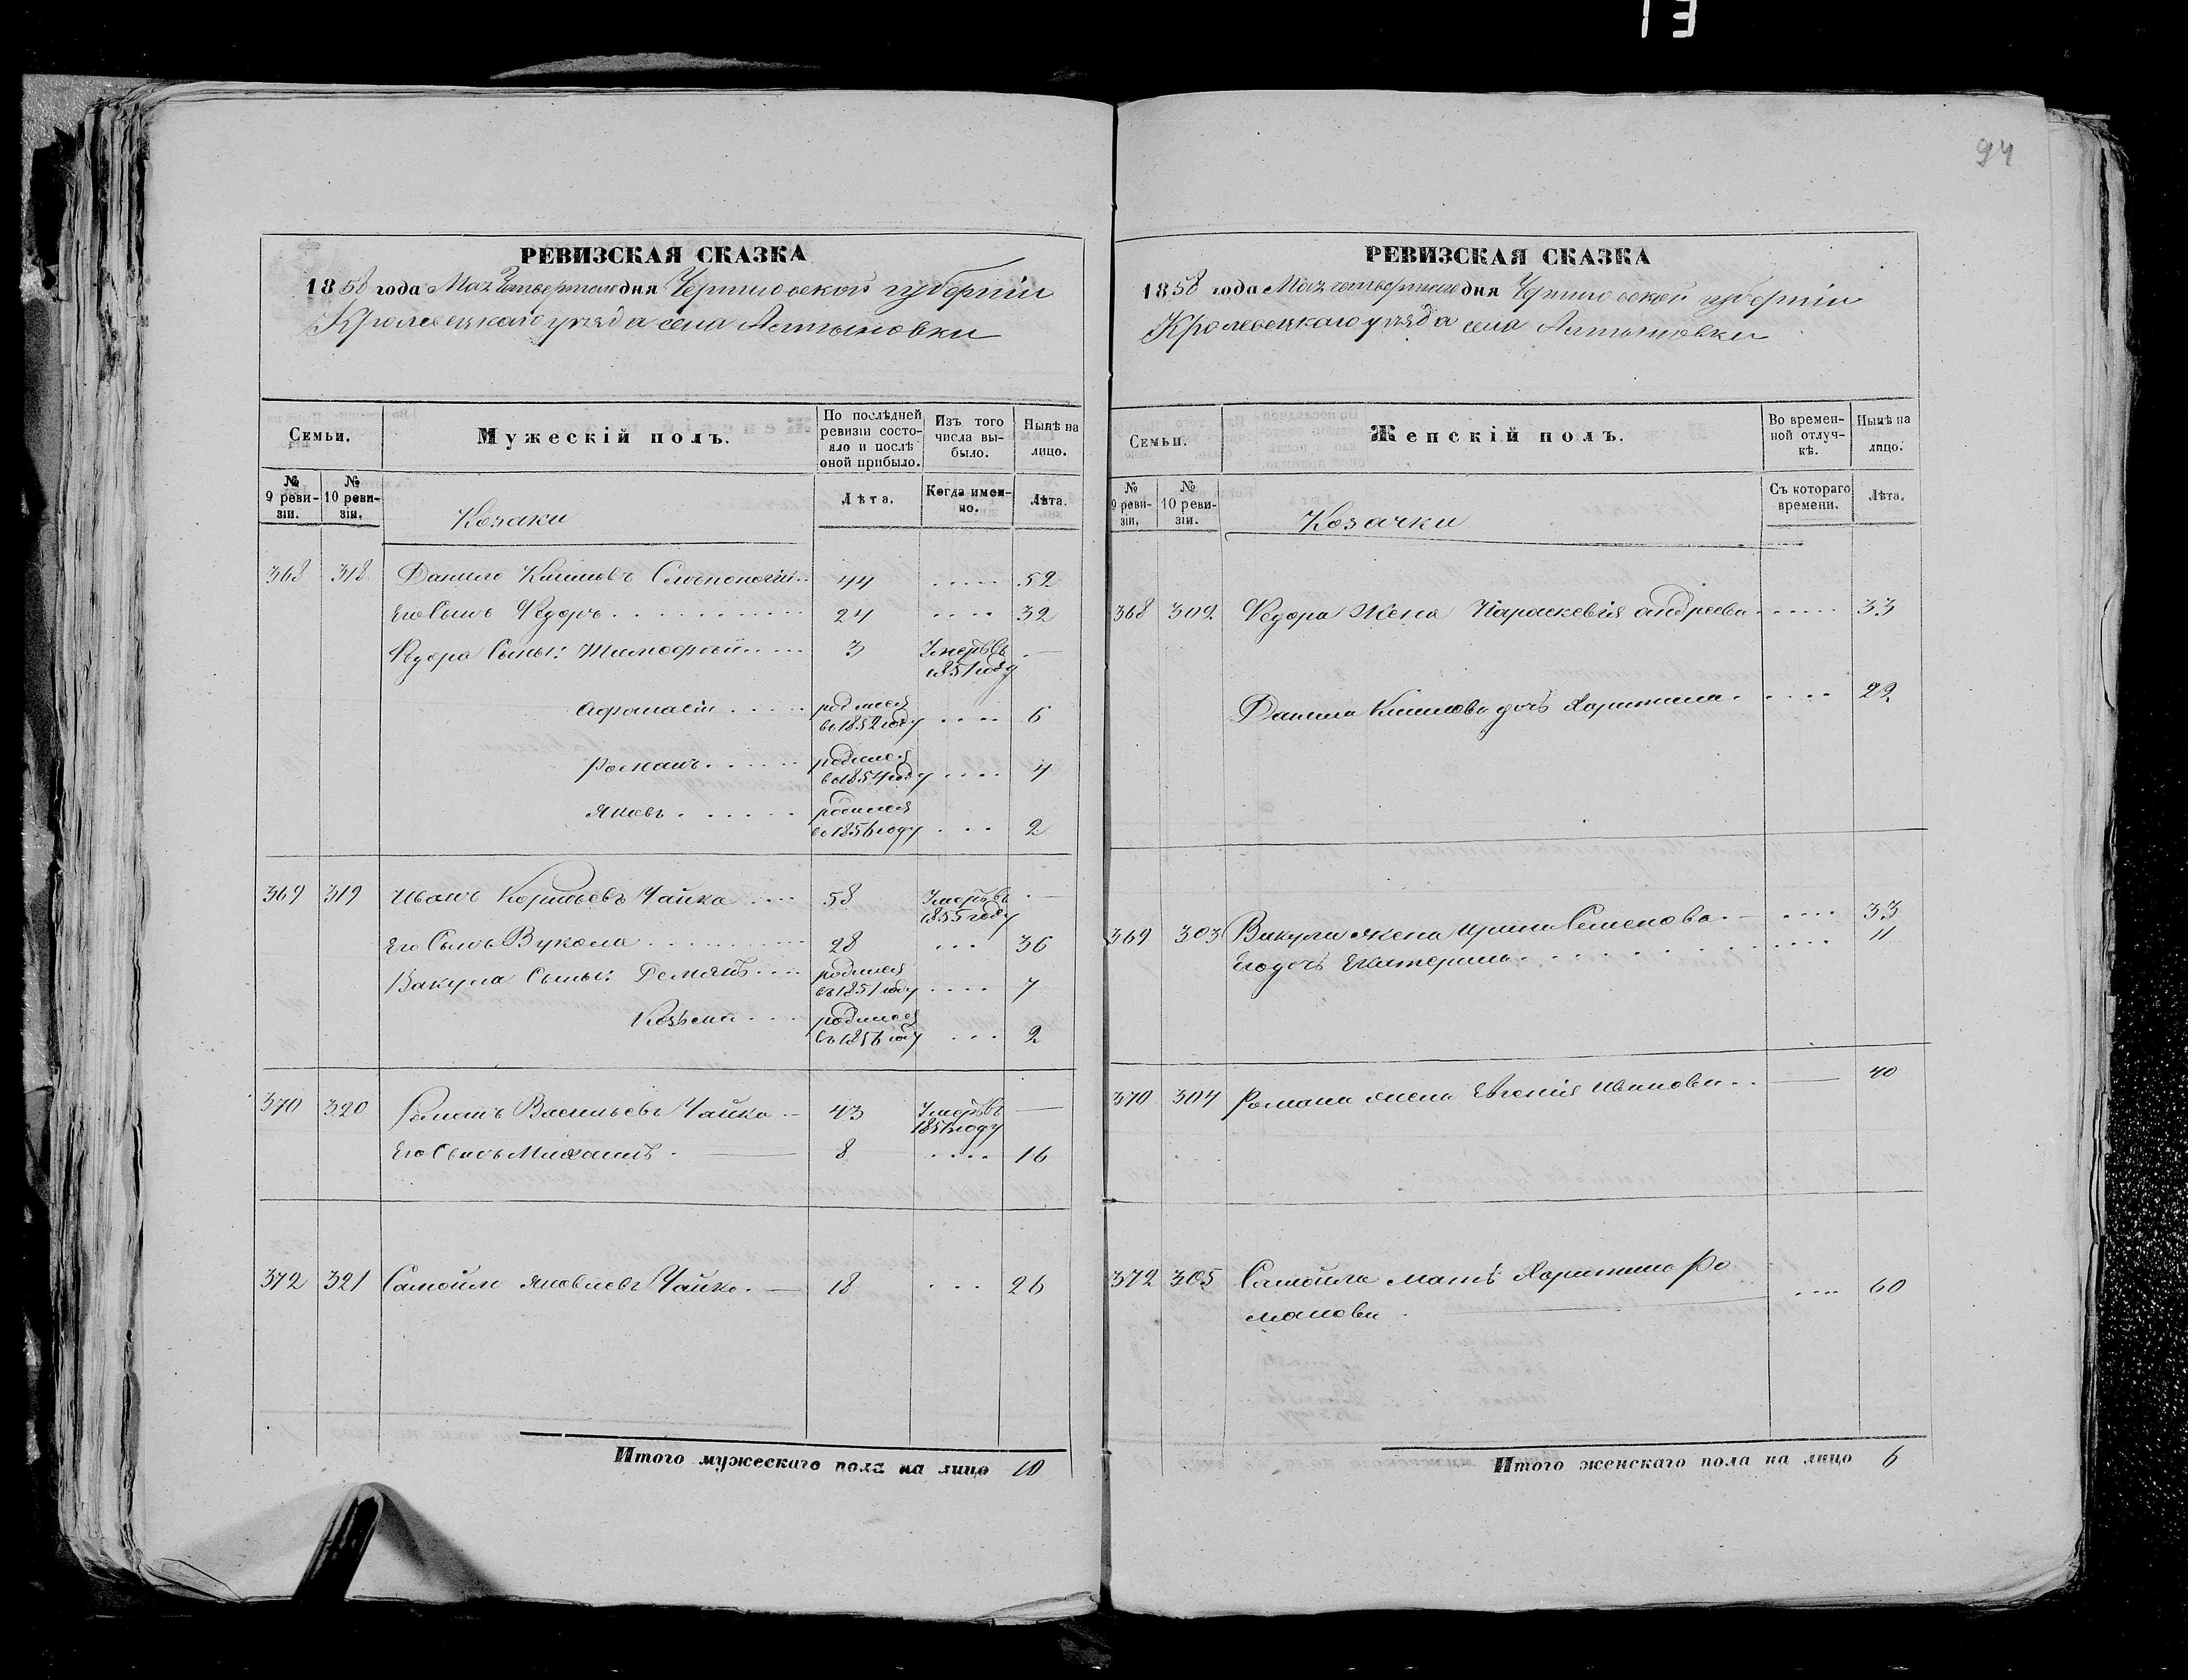 13
94
РЕВИЗСКАЯ СКАЗКА
1858 года Мая четвертого дня Черниговской губернiи
Кролевецкаго уѣзда села Алтыновки
Семьи.
Мужескiй полъ.
По послѣдней ревизiи состояло и послѣ оной прибыло.
Изъ того числа выбыло.
Нынѣ на лицо.
№ 9 ревизiи.
№ 10 ревизiи.
Козаки
Лѣта.
Когда именно.
Лѣта.
368 318 Данило Климовъ 44 ..... 52
Его Сынъ Федоръ 24 .... 32
Федора Сыны: Тимофей 3 Умеръ въ 1851 году —
Афанасiй родился въ 1852 году .... 6
Романъ родился въ 1854 году .... 4
Яковъ родился въ 1856 году .... 2
369 319 Иванъ Корнѣевъ Чайка 58 Умеръ въ 1855 году —
Его Сынъ Вукола 28 ... 36
Вакула Сыны: Демянъ родился въ 1851 году .... 7
Козьма родился въ 1856 году ... 2
370 320 Романъ Васильевъ Чайка 43 Умеръ въ 1856 году —
Его Сынъ Михаилъ 8 .... 16
372 321 Самойло Яковлевъ Чайка 18 ... 26
Итого мужескаго пола на лицо 10
РЕВИЗСКАЯ СКАЗКА
1858 года Мая четвертого дня Черниговской губернiи
Кролевецкаго уѣзда села Алтыновки
Семьи.
Женскiй полъ.
Во временной отлучкѣ.
Нынѣ на лицо.
№ 9 ревизiи.
№ 10 ревизiи.
Козачки
Съ котораго времени.
Лѣта.
368 302 Федора Жена Параскевiя Андреева ..... 33
Данила Климова дочь Харитина ..... 22
369 303 Вакулы жена Ирина Семенова .... 33
Его дочь Екатерина .... 11
370 304 Романа жена Евгенiя Иванова — 40
372 305 Самойла мать Харитина Ро
манова .... 60
Итого женскаго пола на лицо 6